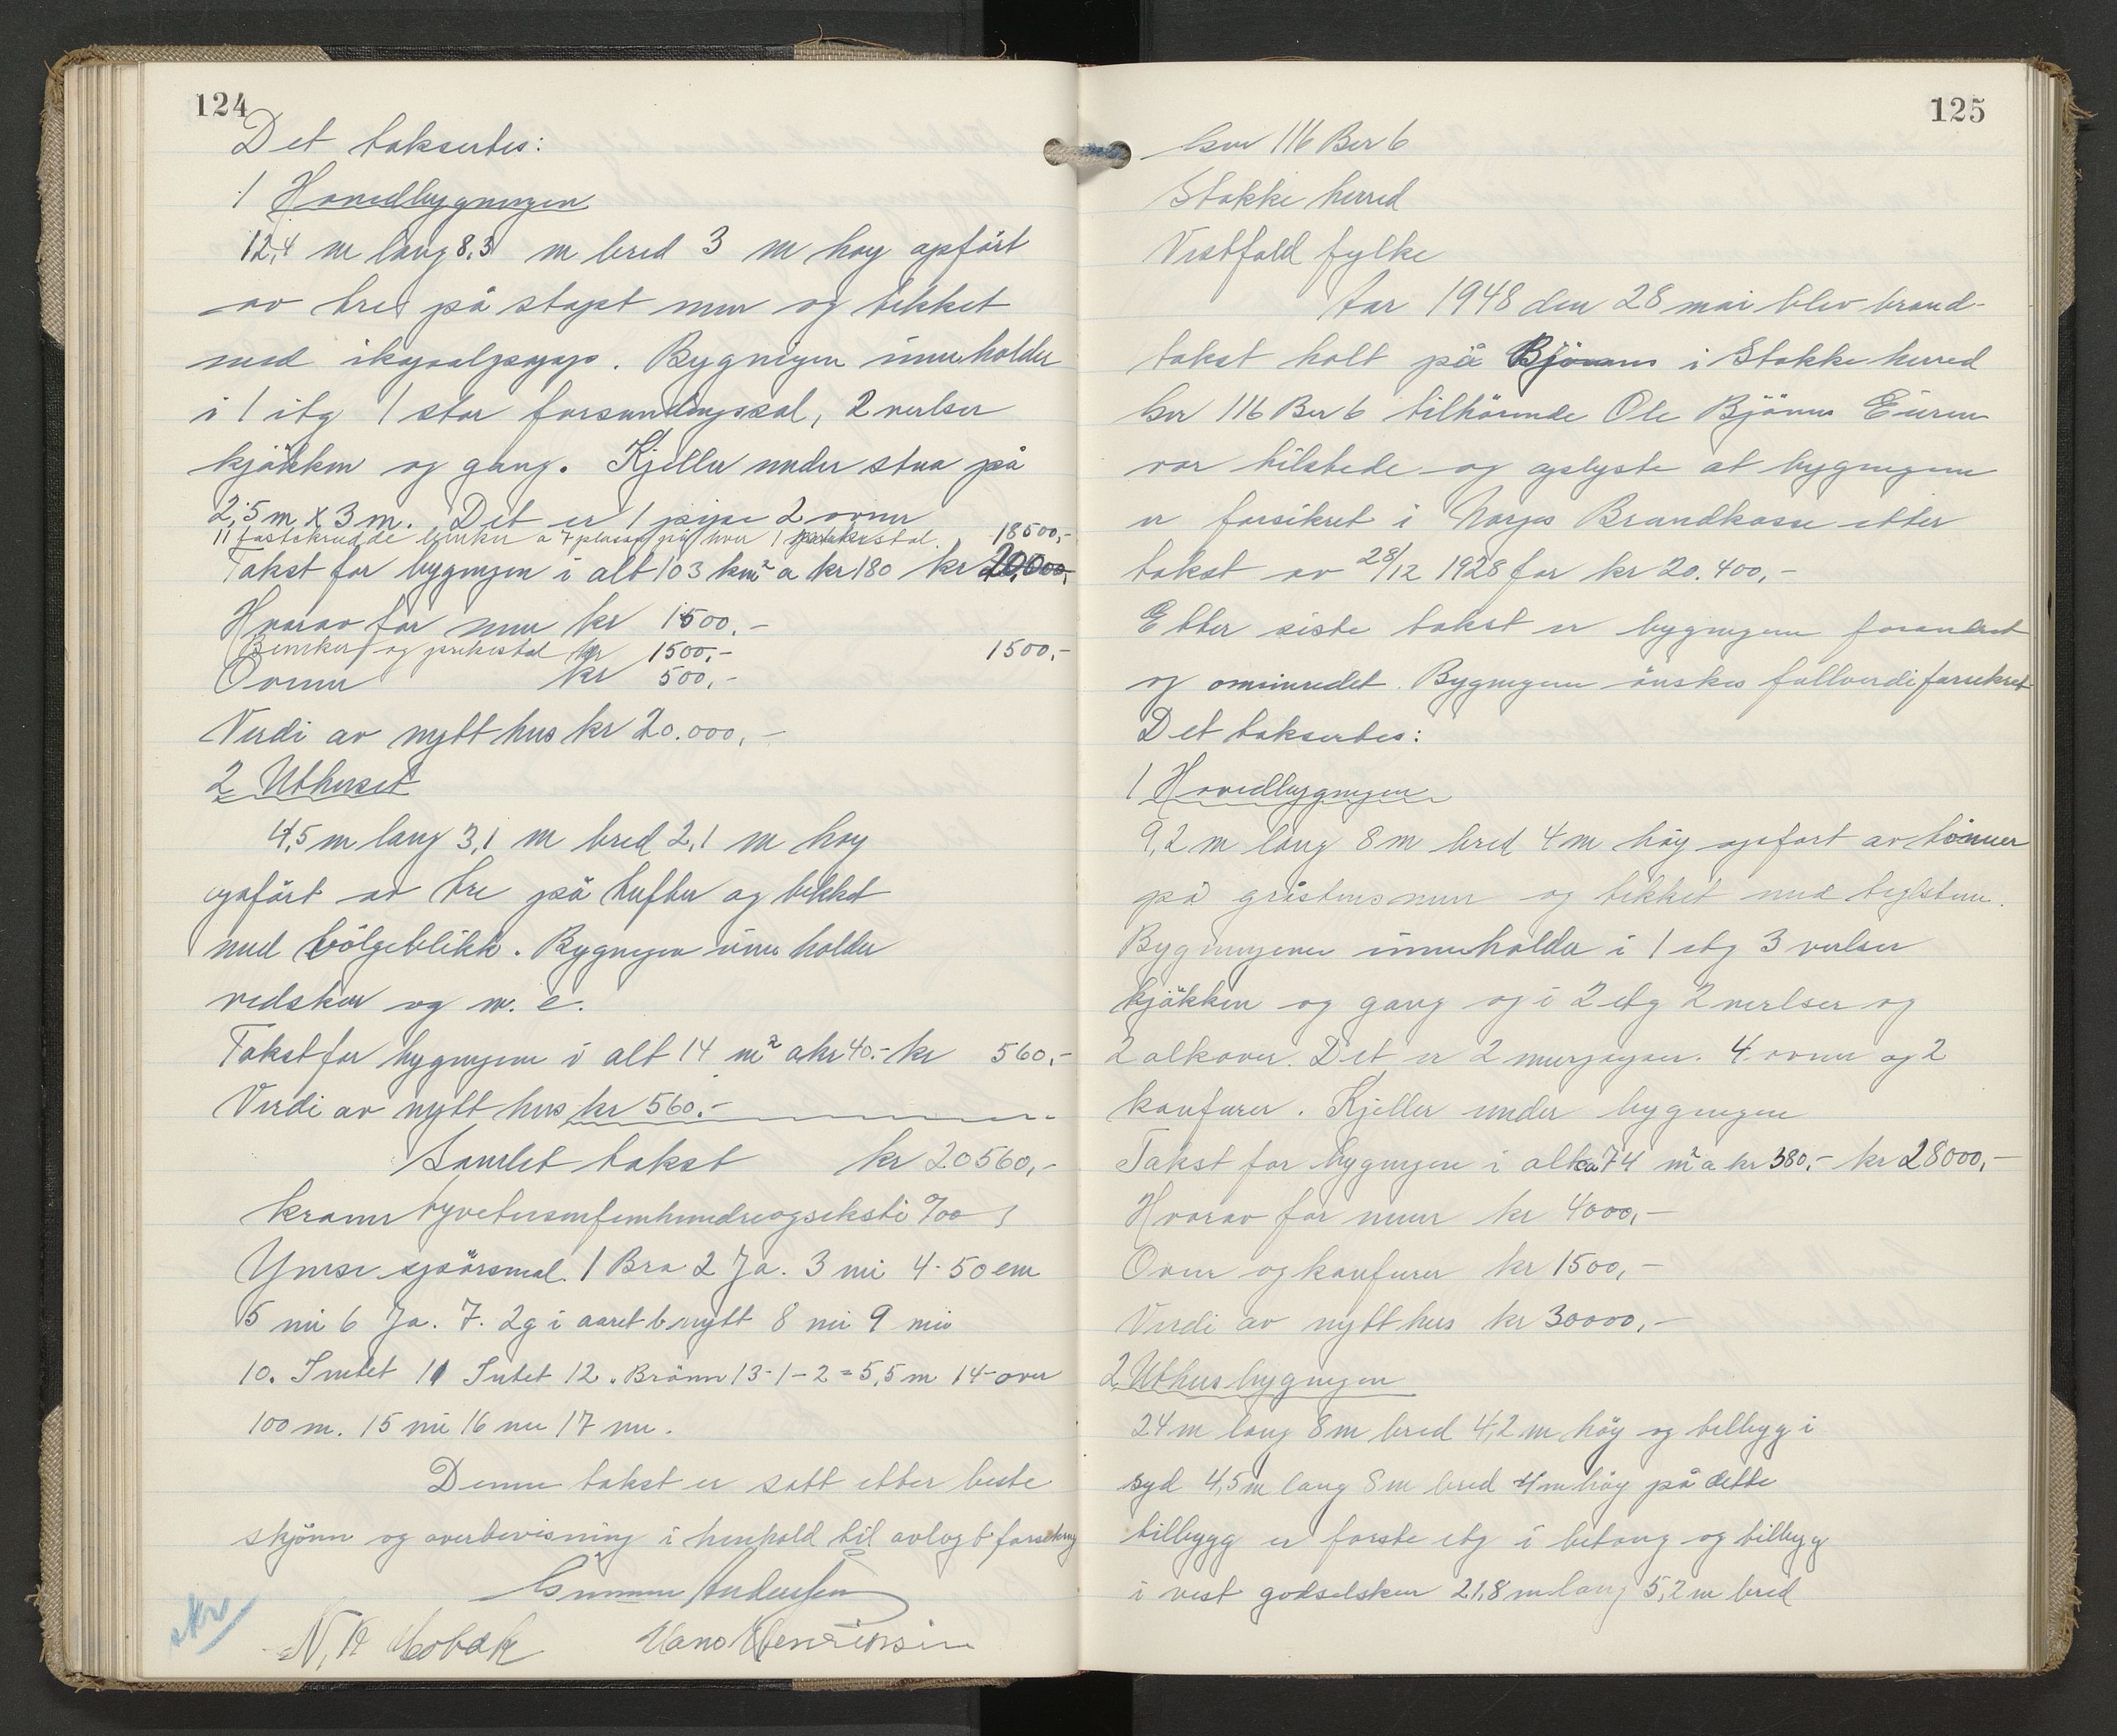 124
Det taksertes:
1 Hovedbygningen
12,4 m lang 8,3 m bred 3 m høy opført
av tre på støpt mur og tekket
med . Bygnigen inneholder
i 1 etg 1 stor forsamlingssal, 2 verlser
kjøkken og gang. Kjeller under stua på
2,5 m x 3 m. Det er 1 pipe 2 ovner
11 fastskrudde benker a 7 plasser på hver 1 prekestol. 18500,-
Takst for bygnigen i alt 103 km² a kr 180 kr 20,000,-
Hvorav for mur kr 1500,-
Benker og prekestol kr 1500,- 1500,-
Ovner kr 500,-
Verdi av nytt hus kr 20.000,-
2 Uthuset
4,5 m lang 3,1 m bred 2,1 m høy
opført av tre på tufter og tekket
med bölgeblikk. Bygnigen inne holder
vedskur og w. c.
Takst for bygnigen i alt 14 m² a kr 40.- kr 560,-
Verdi av nytt hus kr 560.-
Samlet takst kr 20560,-
kroner tyvetusenfemhundreogseksti %00
Ymse spörsmål. 1 Bra 2 Ja. 3 nei 4 - 50 cm
5 nei 6 Ja. 7. 2g i aaret benyttt 8 nei 9 nei
10. Intet 11 Intet 12. Brönn 13-1-2=5,5 m 14-over
100 m. 15 nei 16 nei 17 nei.
Denne takst er satt etter beste
skjönn og overbevisning i henhold til avlagt forsikring
Gunnar Andersen
N. K. Hans Henriksen
skr
125
Gnr 116 Bnr 6
Stokke herred
Vestfold fylke
Aar 1948 den 28 mai blev brand-
takst holt på Bjönnes i Stokke herred
Gnr 116 Bnr 6 tilhörende Ole Bjönnes Eieren
var tilstede og oplyste at bygnigene
er forsikret i Norges Brandkasse etter
takst av 28/12 1928 for kr 20.400,-
Etter siste takst er bygnigene forandret
og ominredet. Bygnigene önskes fullverdiforsikret
Det takseertes:
1 Hovedbygnigen
9,2 m lang 8 m bred 4 m höy opfört av tömmer
på gråstens mur og tekket med teglsten.
Bygnigene inneholder i 1 etg 3 verlser
kjökken og gang og i 2 etg 2 verlser og
2 alkover. Det er 2 murpiper. 4 ovner og 2
konfurer. Kjeller under bygnigen
Takst for bygnigen i alt ca 74 m² a kr 380,- kr 28000,-
Hvorav for mur kr 4000,-
Ovner og konfurer kr 1500,-
Verdi av nytt hus kr 30000,-
2 Uthusbygnigen
24 m lang 8 m bred 4,2 m höy og tilbygg i
syd 4,5 m lang 8 m bred 4 m höy på dette
tilbygg er förste etg i betong og tilbygg
i vest gödselskur 21,8 m lang 5,2 m bred